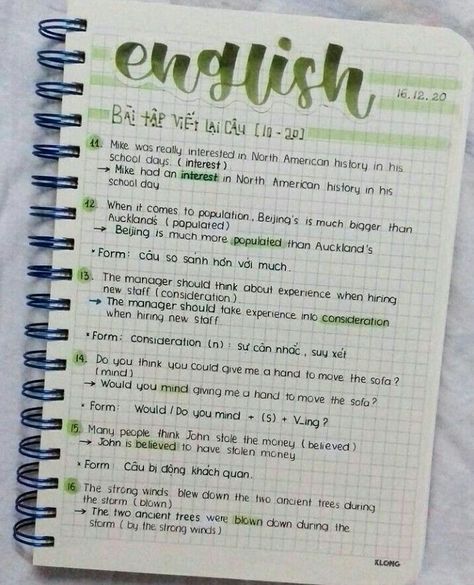 english
16.12.20
BÀI TẬP VIẾT LẠI CÂU [10-20]
11. Mike was really interested in North American history in his
school days. (interest)
→ Mike had an interest in North American history in his
school day
12. When it comes to population, Beijing's is much bigger than
Auckland's (populated)
→ Beijing is much more populated than Auckland's
* Form: câu so sánh hơn với much.
13. The manager should think about experience when hiring
new staff (consideration)
→ The manager should take experience into consideration
when hiring new staff
* Form: consideration (n): sự cân nhắc, suy xét
14. Do you think you could give me a hand to move the sofa?
(mind)
→ Would you mind giving me a hand to move the sofa?
* Form: Would / Do you mind + (S) + V_ing?
15. Many people think John stole the money (believed)
→ John is believed to have stolen money
* Form: Câu bị động khách quan.
16 The strong winds blew down the two ancient trees during
the storm (blown)
→ The two ancient trees were blown down during the
storm (by the strong winds)
KLONG